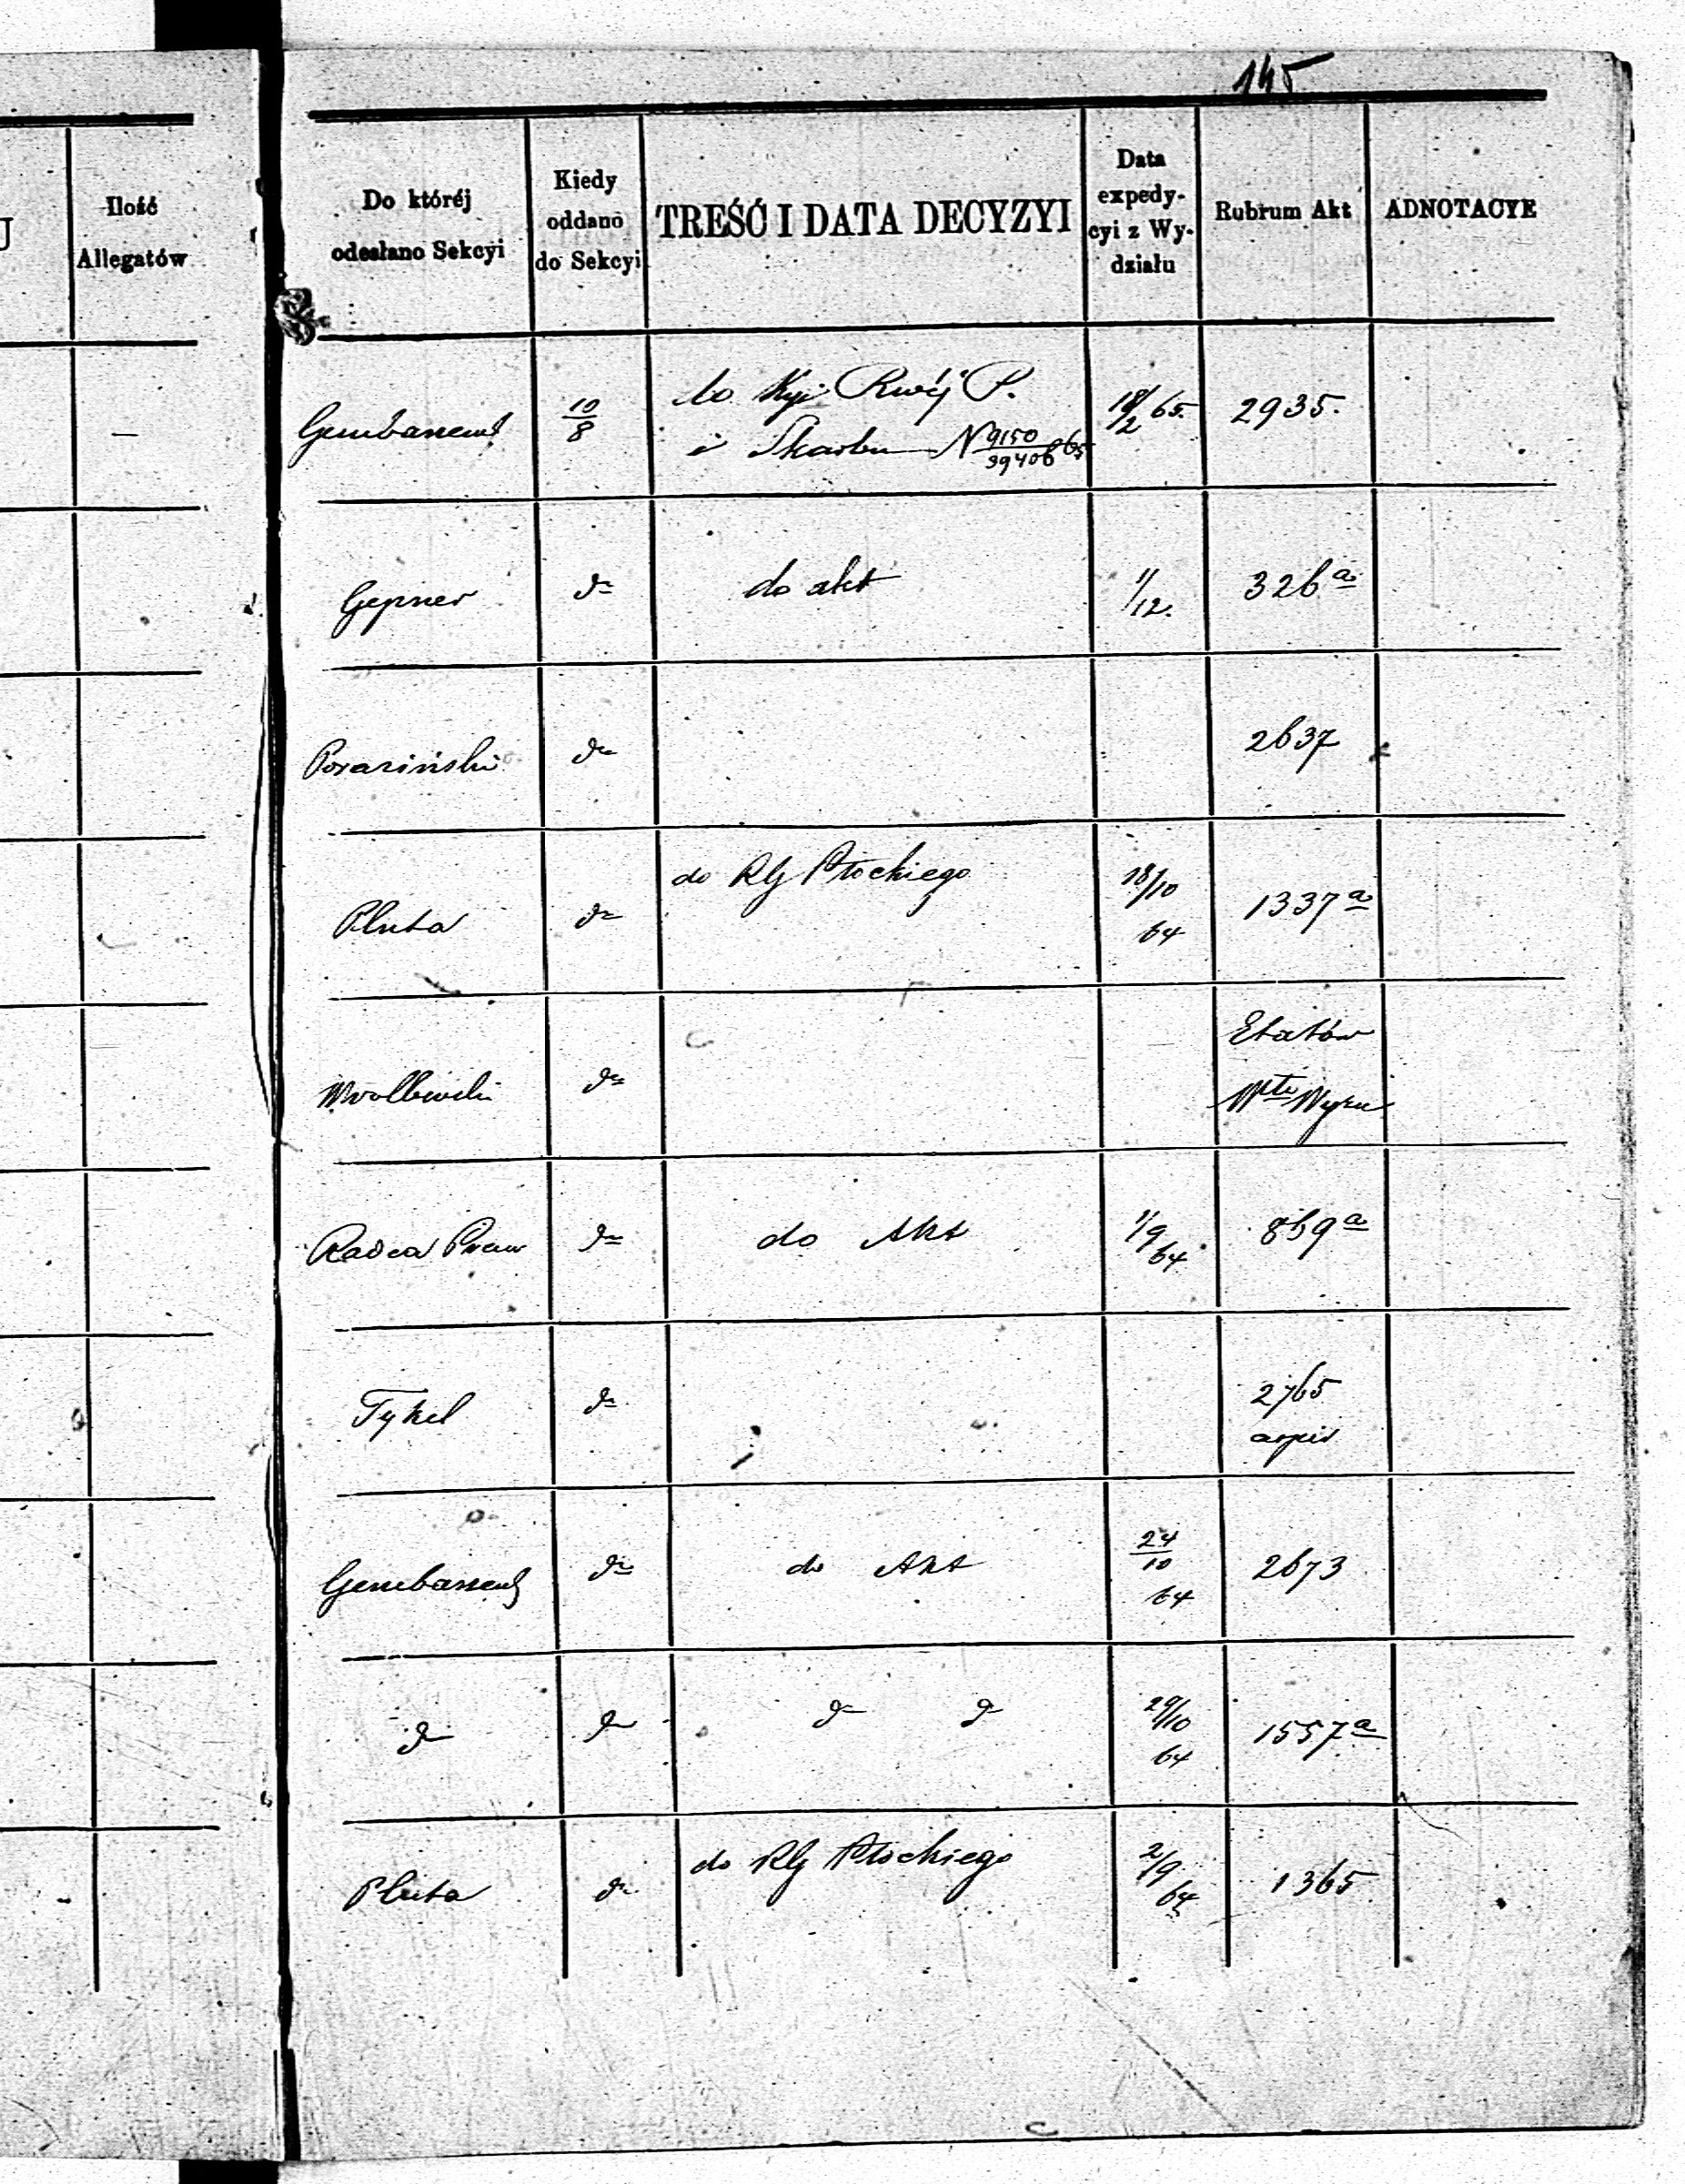 145
U
Ilość
Allegatów
Do któréj
odesłano Sekcyi
Kiedy
oddano
do Sekcyi
TREŚĆ I DATA DECYZYI
Data
expedy-
cyi z Wy-
działu
Rubrum Akt
ADNOTACYE
—
10/8
do Kyi P.
i Skarbu N 9150/39406 65
18/2 65.
2935.
Gepner
do
do akt
1/12.
326 a
do
2637
Pluta
do
do RG Płockiego
18/10
64
1337 a
do
Etatów
Radca Praw
do
do Akt
1/9
64
869 a
Tykel
do
2765
do
do Akt
24/10
64
2673
do
do
do do
29/10
64
1557 a
Pluta
do
do RG Płockiego
2/9
64
1365